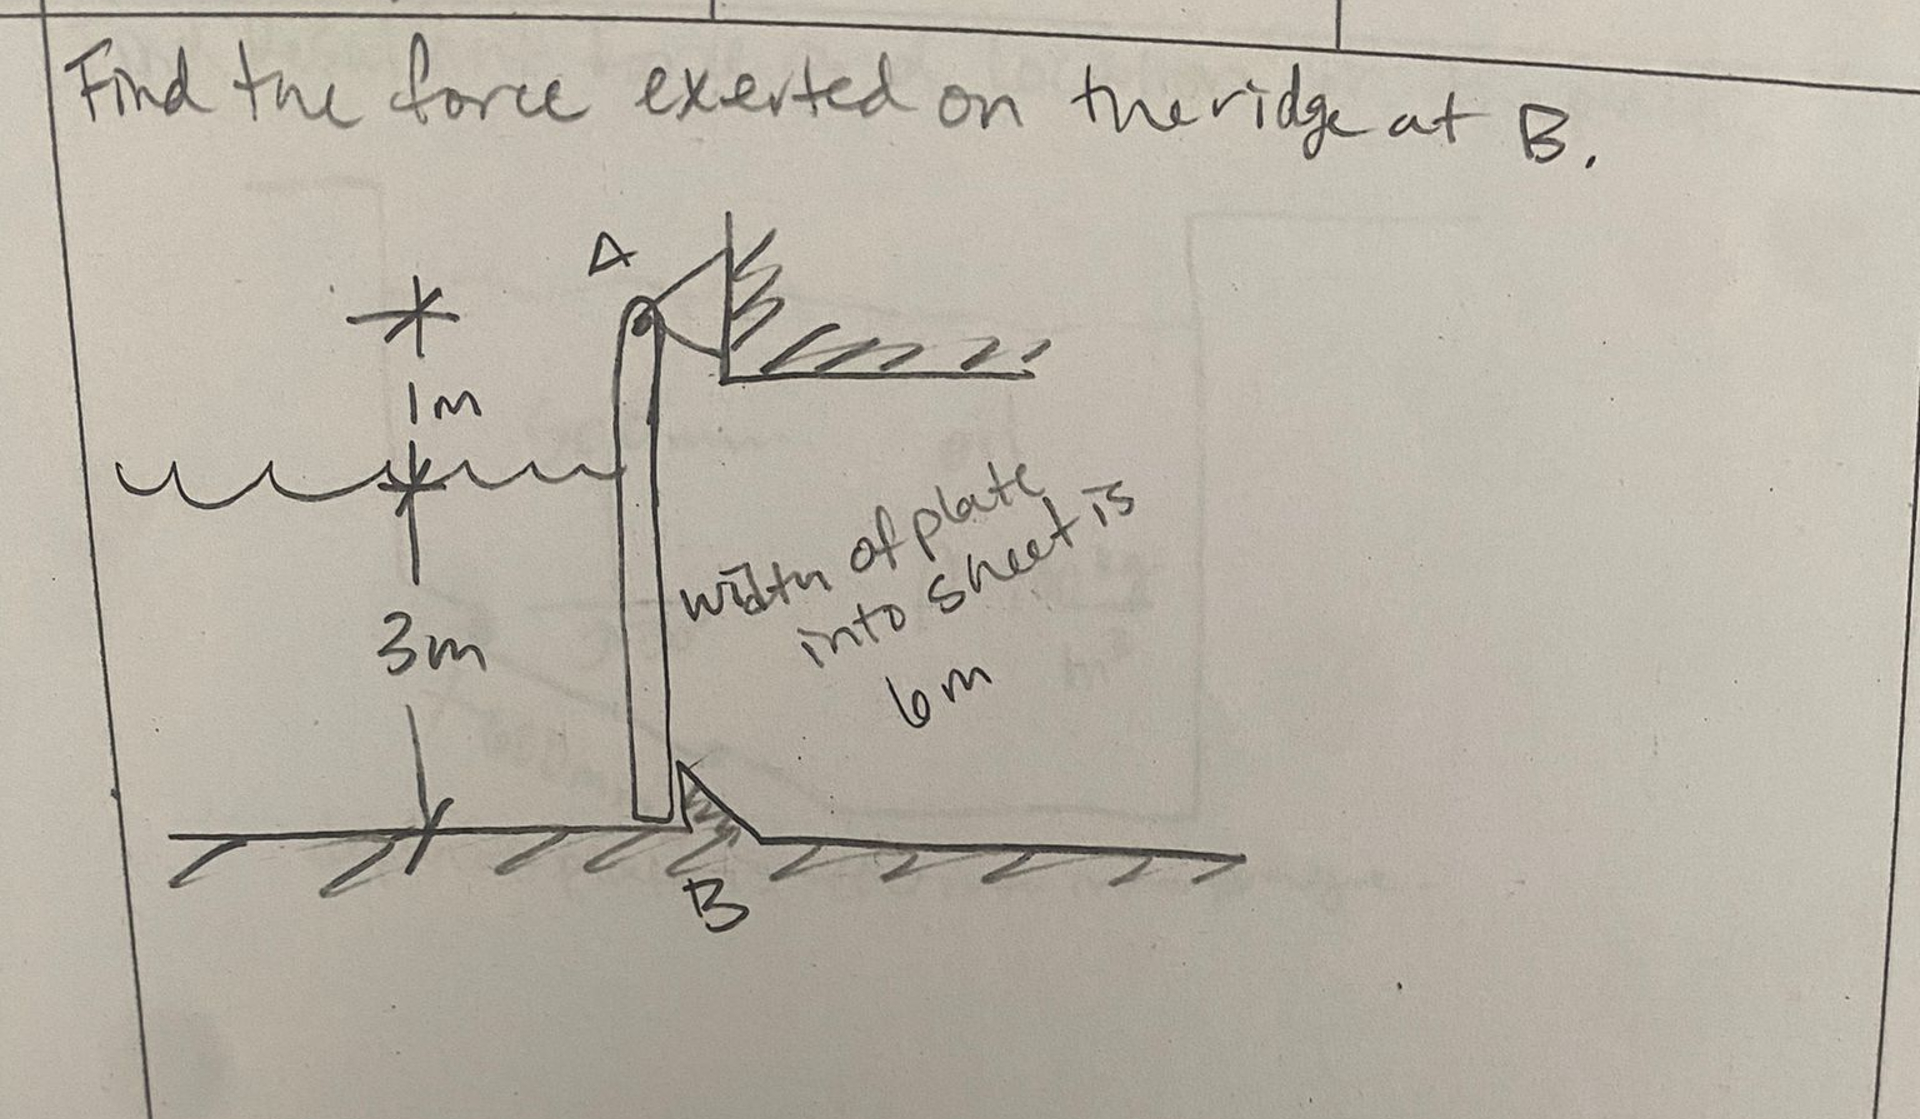 Find the force exerted on the ridge at B.
A
1m
width of plate
into sheet is
3m
6m
B